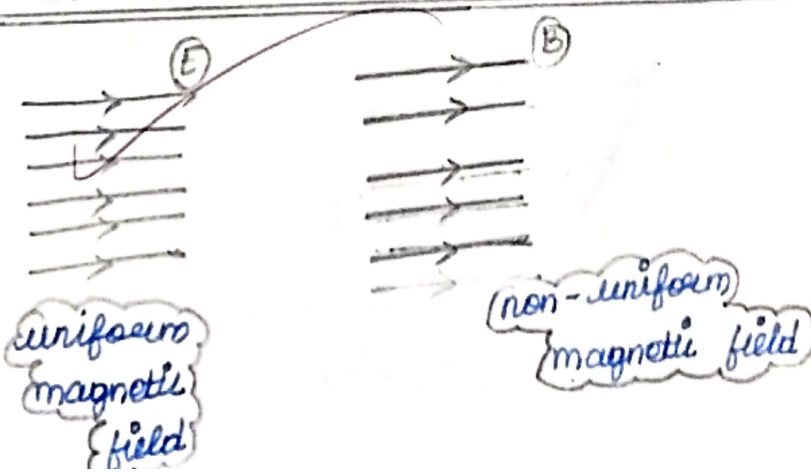 E
B
uniform
magnetic
field
non-uniform
magnetic field